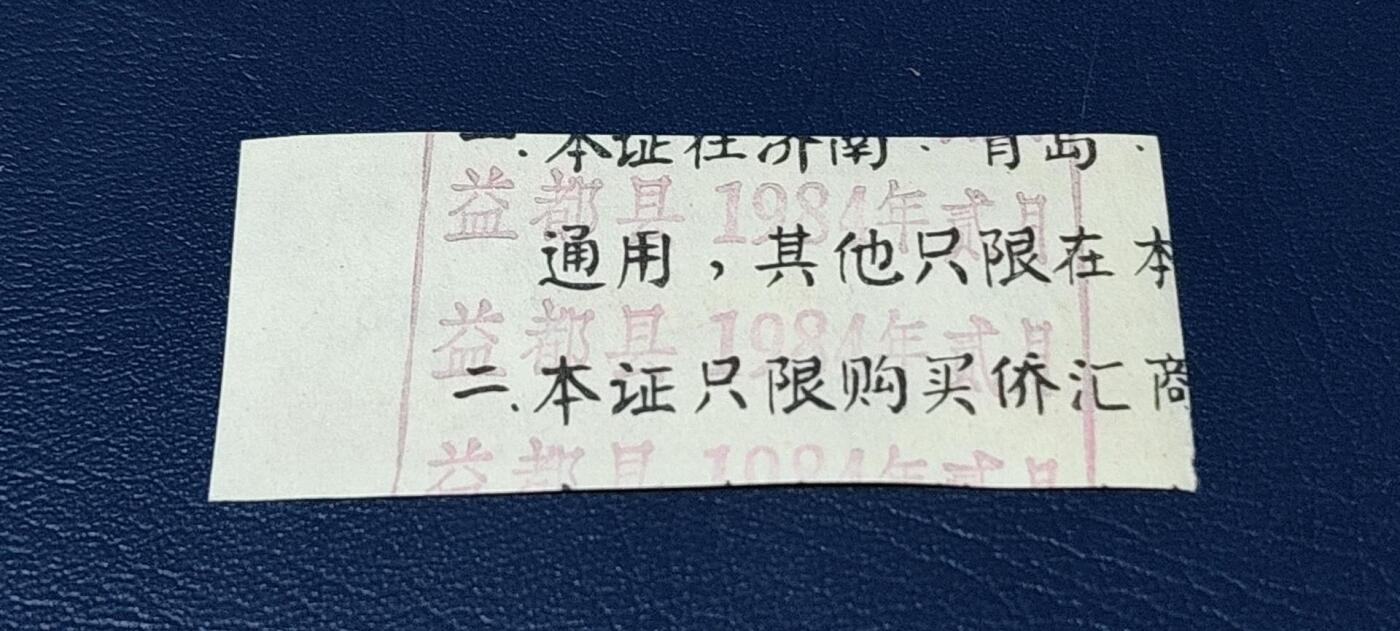 一.本证在济南.青岛.
益都县1984年贰月
通用，其他只限在本
益都县1984年贰月
二.本证只限购买侨汇商
益都县1984年贰月